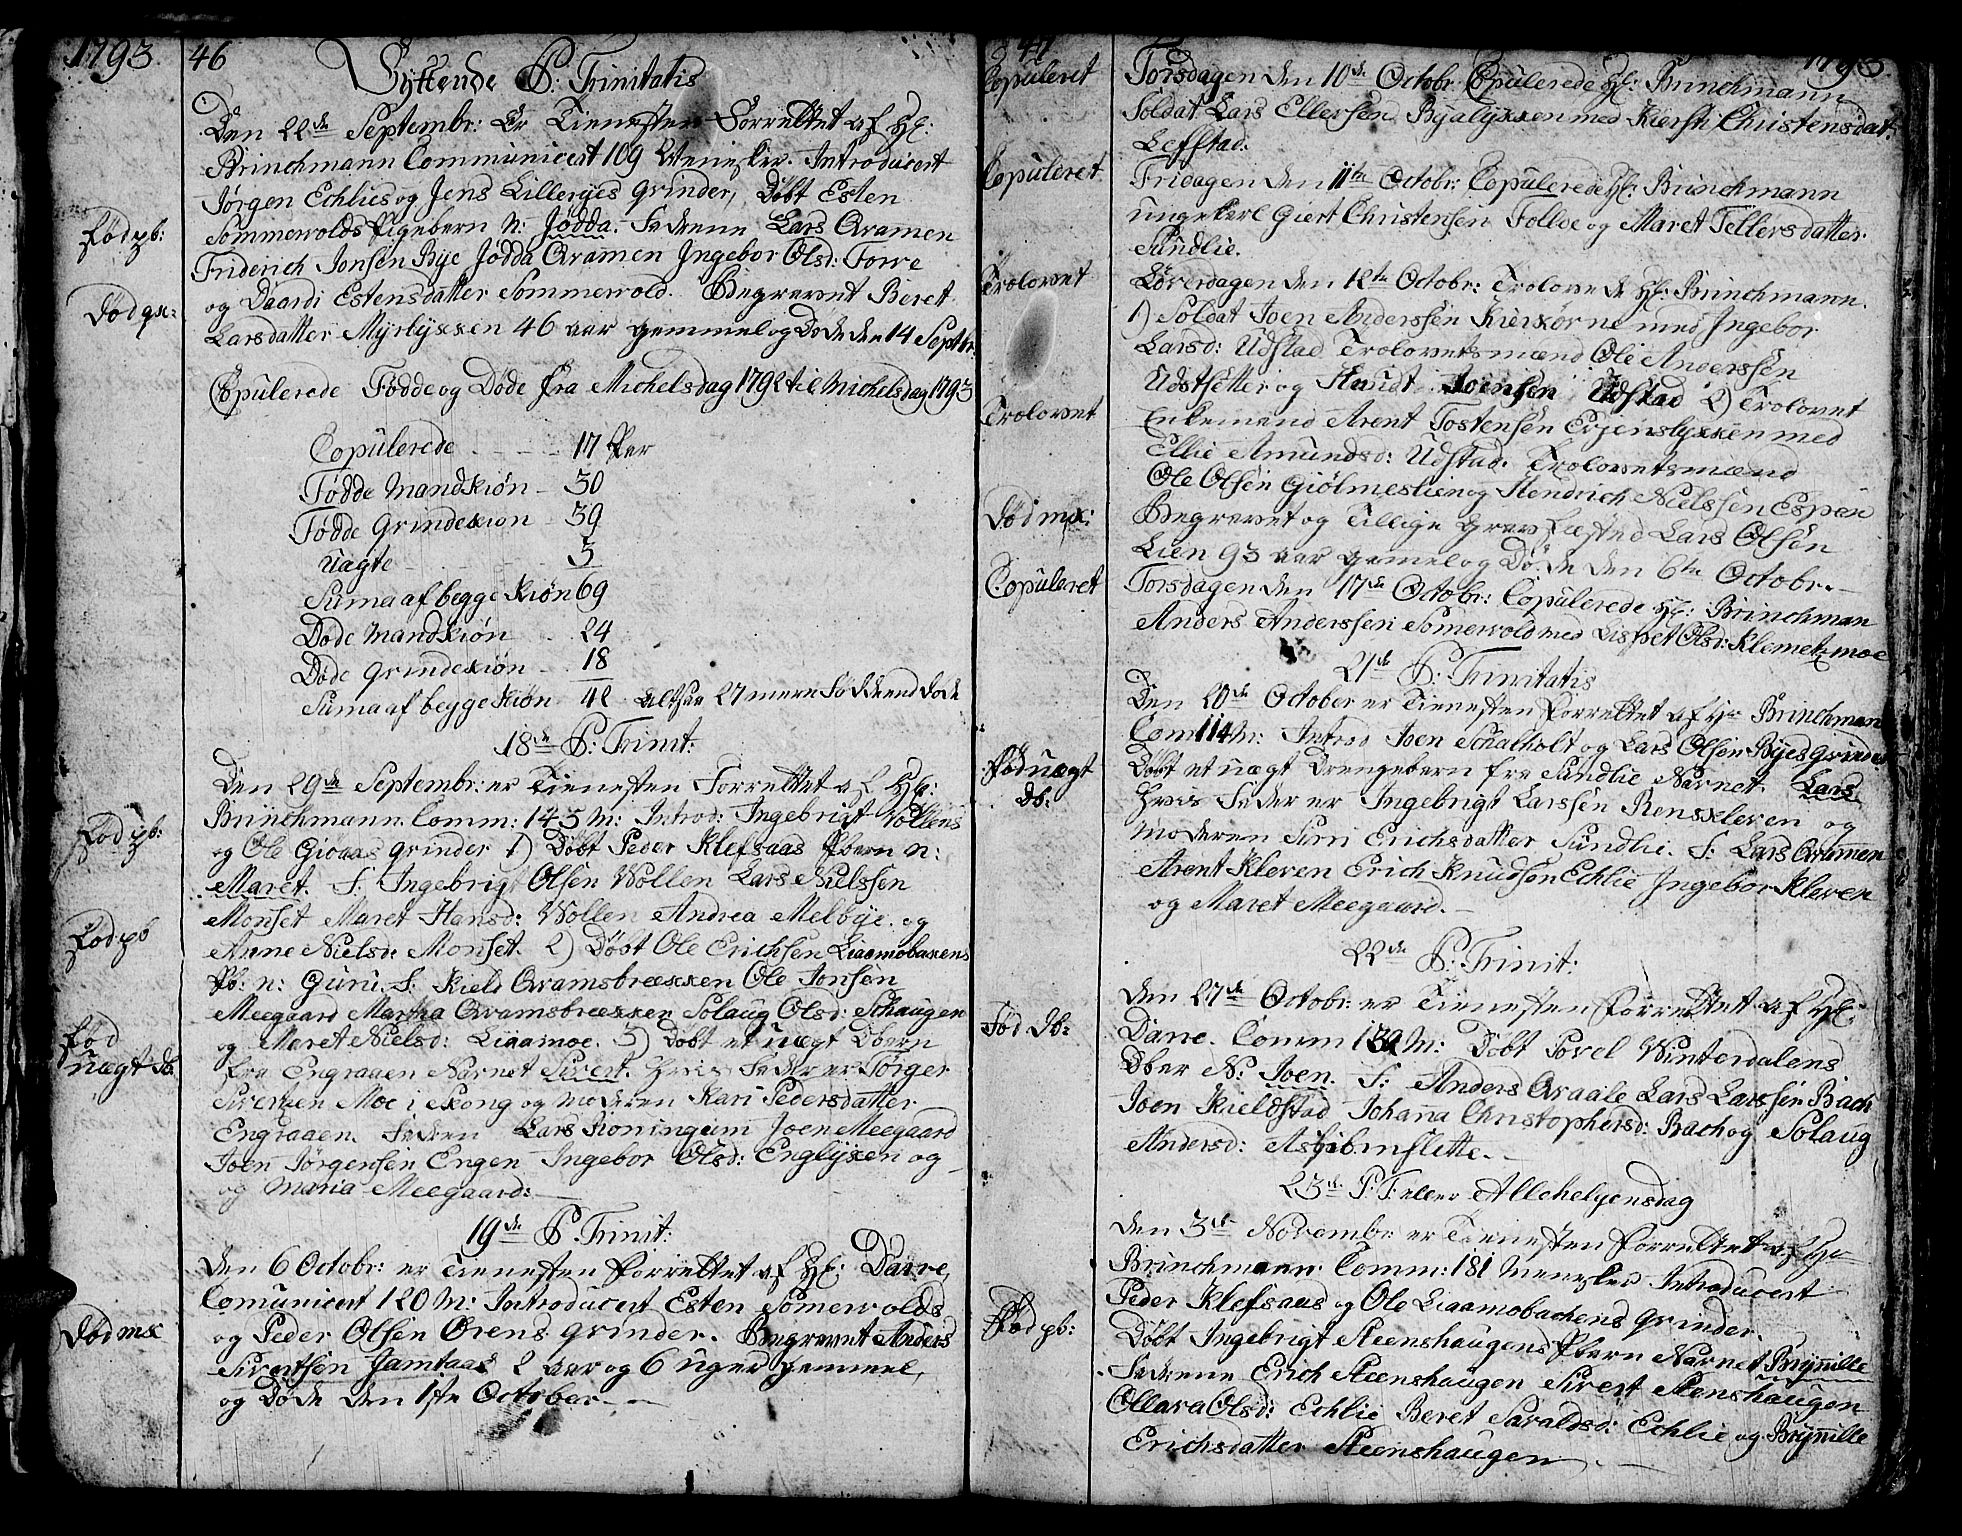 1793.
46
Syttende P: Trinitatis
Den 22de Septembr: Er Tienesten Forrettet af Hr:
Brinchmann Communicert 109 Menisker. Introducert
Jörgen Echlies og Jens Lillerges grinder, Döbt Esten
Födpb:
Sommervolds Pigebern n: Jödda. Federne Lars Qramen
Friderich Jonsen Bye Jödda Qramen Ingebor Olsd: Forre
og Daardi Estensdatter Sommervold. Begravet Beret
Död qx:
Larsdatter Myrlyxxen 46 aar gammel og Döde den 14 Septbr
Copulerede Födde og Döde fra Michelsdag 1792 til Michelsdag 1793
Copulerede 17 Per
Födde Mandkiön 30
Födde Qvindekiön 39
Uægte 3
Suma af begge Kiön 69
Döde Mandkiön 24
Döde Qvindekiön 18
Suma af begge Kiön 42 Altsaa 27 mere Födde end Döde
18de P: Trinit:
Den 29de Septembr: er Tienesten Forrettet af Hr:
Brinchmann. Comm: 143 M: Introd: Ingebrigt Vollens
Födpb:
og Ole Giöaas grinder 1) Döbt Peder Klefsaas Pbern n:
Maret. F: Ingebrigt Olsen Wollen Lars Nielssen
Monset Maret Hansd: Wollen Andrea Melbye. og
Födpb
Anne Nielsd: Monset. 2) Döbt Ole Erichsen Liaamobaxens
Pb: n: Guru. F: Kield Qramsbrexxen Ole Jonsen
Meegaard Martha Qramsbrexxen Solaug Olsd: Schaugen
Föd
uægt Db.
og Maret Nielsd: Liaamoe. 3) Döbt et uægt Dbern
fra Engraaen Navnet Sivert. Hvis Feder er Törger
Sivertsen Moe i Skong og Moderen Kari Pedersdatter
Engraaen. Federne Lars Koningum Joen Meegaard
Joen Jörgensen Engen Ingebor Olsd: Englyxen og
og Maria Meegaard:
19de P. Trinit:
Den 6 Octobr: er Tienesten Forrettet af Hr: Darre,
Comunicert 120 M: Introducert Esten Somervolds
Död mx
og Peder Olsen Orens grinder. Begravet Anders
Sivertsen Jamtaas 2 aar og 6 uger gammel,
og Döde den 1ste October
47
1793
Copuleret
Torsdagen den 10de Octobr. Copulerede Hr: Brinchmann
Soldat Lars Ellersen Byalyxxen med Kiersti Christensdat.
Leffstad.
Copuleret
Fridagen den 11te Octobr: Copulerede Hr: Brinchmann
ungekarl Giert Christensen Folloe og Maret Tellersdatter
Sundlie.
Trolovet
Löverdagen den 12te Octobr: Trolovede Hr: Brinchmann.
1) Soldat Joen Anderssen Kierxorne med Ingebor
Larsd: Udstad Trolovetsmænd Ole Anderssen
Udstsetter og Knudt Joensen Udstad 2) Trolovet
Trolovet
Enkemand Arent Tostensen Erjenslyxxen med
Ellie Amundsd: Udstad: Trolovetsmænd
Ole Olsen Giölmeslien og Hendrich Nielssen Espen
Död mx:
Begravet og tillige Gravfæsted Lars Olsen
Lien 93 aar gamel og Döde den 6te Octobr.
Copuleret
Torsdagen den 17de Octobr: Copulerede Hr: Brinchman
Anders Anderssen Somervold med Lispet Olsd: Klemetzmoe
21de P: Trinitatis
Den 20de October er Tienesten Forrettet af Hr Brinchman
Com 114 M: Introd Joen Schalholt og Lars Olsen Byes grinder
Föd uægt
Db:
Döbt et uægt Drengebern fra Sundlie Navnet Lars
Hvis Feder er Ingebrigt Larssen Rensxleven og
Moderen Siri Erichsdatter Sundlie. F: Lars Qramen
Arent Kleven Erich Knudsen Echlie Ingebor Kleven
og Maret Meegaard.
22de P: Trinit:
Den 27de Octobr: er Tienesten Forrettet af Hr:
Föd Db:
Darre. Comm 139 M: Döbt Povel Winterdalens
Dber N: Joen. F: Anders Qraale Lars Larssen Bach
Joen Kieldstad Johana Christophersd: Bach og Solaug
Andersd: Asbibrnslette.
23de P: T: eller Allehelgensdag
Den 3de Novembr: er Tienesten Forrettet af Hr
Brinchmann. Comm: 181 Menesker Introducert
Peder Klefsaas og Ole Liaamobachens grinder.
Föd pb:
Döbt Ingebrigt Steenshaugens Pbern Navnet Brynille
Federne Erich Steenshaugen Sivert Stenshaugen
Ollara Olsd: Echlie Beret Saraldsd: Echlie og Brynille
Erichsdatter Steenshaugen